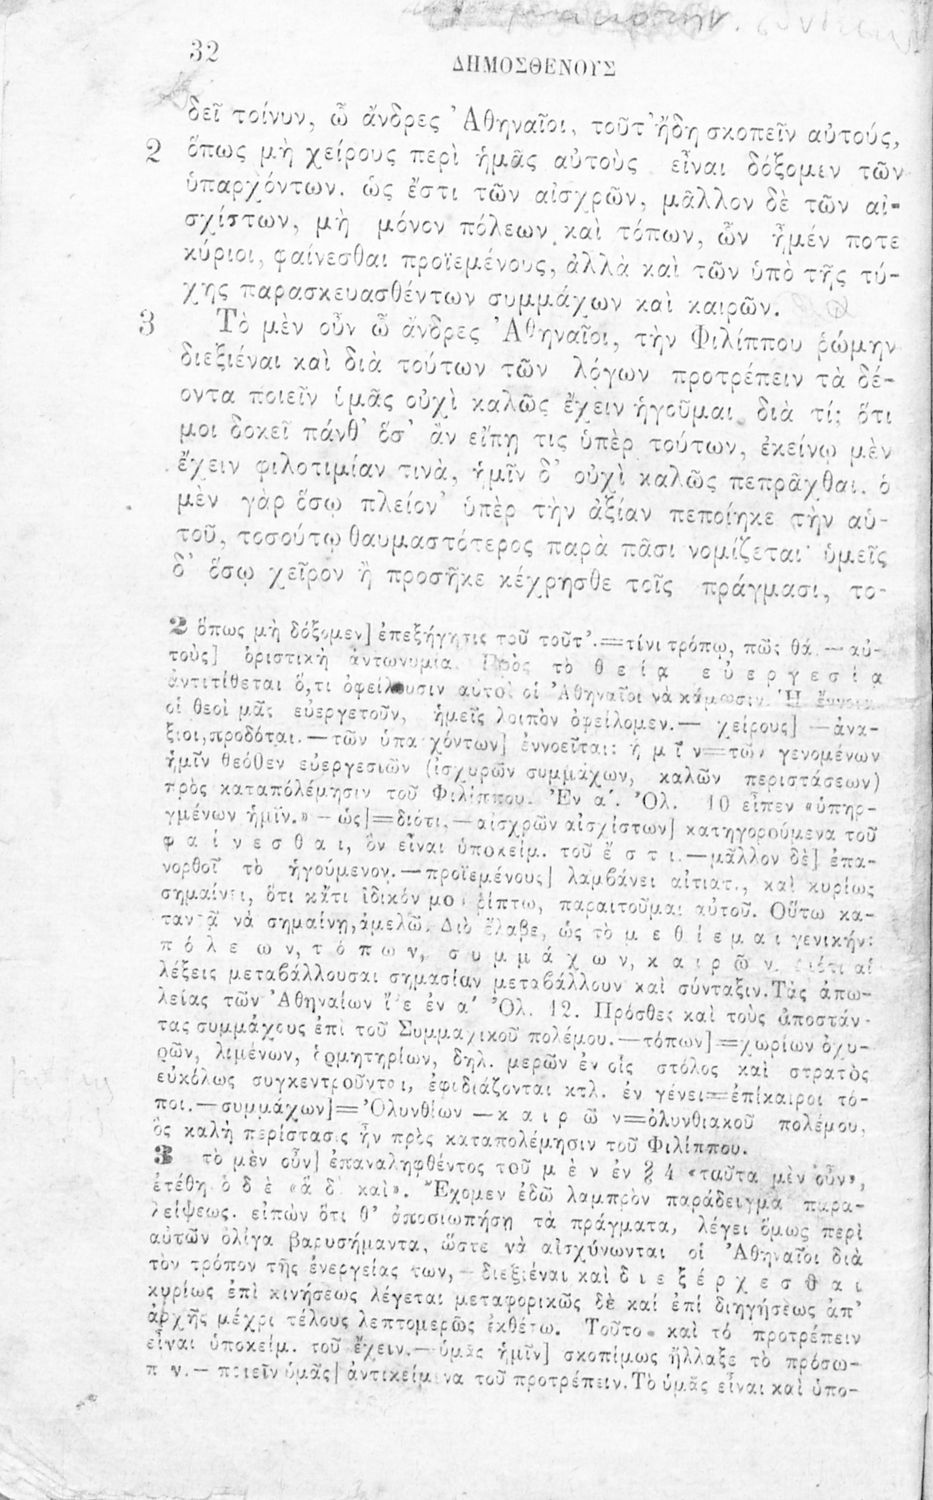 32
ΔΗΜΟΣΘΕΝΟΥΣ
δεῖ τοίνυν, ὦ ἄνδρες Ἀθηναῖοι, τοῦτ' ἤδη σκοπεῖν αὐτούς,
2 ὅπως μὴ χείρους περὶ ἡμᾶς αὐτοὺς εἶναι δόξομεν τῶν
ὑπαρχόντων. ὡς ἔστι τῶν αἰσχρῶν, μᾶλλον δὲ τῶν αἰ-
σχίστων, μὴ μόνον πόλεων καὶ τόπων, ὧν ἦμέν ποτε
κύριοι, φαίνεσθαι προϊεμένους, ἀλλὰ καὶ τῶν ὑπὸ τῆς τύ-
χης παρασκευασθέντων συμμάχων καὶ καιρῶν.
3 Τὸ μὲν οὖν ὦ ἄνδρες Ἀθηναῖοι, τὴν Φιλίππου ῥώμην
διεξιέναι καὶ διὰ τούτων τῶν λόγων προτρέπειν τὰ δέ-
οντα ποιεῖν ὑμᾶς οὐχὶ καλῶς ἔχειν ἡγοῦμαι. διὰ τί; ὅτι
μοι δοκεῖ πάνθ' ὅσ' ἂν εἴπῃ τις ὑπὲρ τούτων, ἐκείνῳ μὲν
ἔχειν φιλοτιμίαν τινὰ, ἡμῖν δ' οὐχὶ καλῶς πεπρᾶχθαι. ὁ
μὲν γὰρ ὅσῳ πλείον' ὑπὲρ τὴν ἀξίαν πεποίηκε τὴν αὑ-
τοῦ, τοσούτῳ θαυμαστότερος παρὰ πᾶσι νομίζεται· ὑμεῖς
δ' ὅσῳ χεῖρον ἢ προσῆκε κέχρησθε τοῖς πράγμασι, το-
2 ὅπως μὴ δόξομεν] ἐπεξήγησις τοῦ τοῦτ'.=τίνι τρόπῳ, πῶς θά.—αὐ-
τοὺς] ὁριστικὴ ἀντωνυμία. Πρὸς τὸ θείᾳ εὐεργεσίᾳ
ἀντιτίθεται ὅ,τι ὀφείλουσιν αὐτοὶ οἱ Ἀθηναῖοι νὰ κάμωσιν. Ἡ ἔννοια
οἱ θεοὶ μᾶς εὐεργετοῦν, ἡμεῖς λοιπὸν ὀφείλομεν.— χείρους] —ἀνα-
ξιοι, προδόται.—τῶν ὑπαρχόντων] ἐννοεῖται: ἡμῖν=τῶν γενομένων
ἡμῖν θεόθεν εὐεργεσιῶν (ἰσχυρῶν συμμάχων, καλῶν περιστάσεων)
πρὸς καταπόλέμησιν τοῦ Φιλίππου. Ἐν α'. Ὀλ. 10 εἶπεν «ὑπηρ-
γμένων ἡμῖν.» —ὡς]=διότι.—αἰσχρῶν αἰσχίστων] κατηγορούμενα τοῦ
φαίνεσθαι, ὃν εἶναι ὑποκείμ. τοῦ ἔστι.—μᾶλλον δὲ] ἐπα-
νορθοῖ τὸ ἡγούμενον.—προϊεμένους] λαμβάνει αἰτιατ., καὶ κυρίως
σημαίνει, ὅτι κἄτι ἰδικόν μου ῥίπτω, παραιτοῦμαι αὐτοῦ. Οὕτω κα-
ταντᾷ νὰ σημαίνῃ, ἀμελῶ. Διὸ ἔλαβε, ὡς τὸ μεθίεμαι γενικήν:
πόλεων, τόπων, συμμάχων, καιρῶν. διότι αἱ
λέξεις μεταβάλλουσαι σημασίαν μεταβάλλουν καὶ σύνταξιν. Τὰς ἀπω-
λείας τῶν Ἀθηναίων ἴδε ἐν α' Ὀλ. 12. Πρόσθες καὶ τοὺς ἀποστάν-
τας συμμάχους ἐπὶ τοῦ Συμμαχικοῦ πολέμου.—τόπων]=χωρίων ὀχυ-
ρῶν, λιμένων, ὁρμητηρίων, δηλ. μερῶν ἐν οἷς στόλος καὶ στρατὸς
εὐκόλως συγκεντροῦνται, ἐφοδιάζονται κτλ. ἐν γένει=ἐπίκαιροι τό-
ποι.—συμμάχων]=Ὀλυνθίων —καιρῶν=ὀλυνθιακοῦ πολέμου,
ὃς καλὴ περίστασις ἦν πρὸς καταπολέμησιν τοῦ Φιλίππου.
3 τὸ μὲν οὖν] ἐπαναληφθέντος τοῦ μὲν ἐν § 4 «ταῦτα μὲν οὖν»,
ἐτέθη ὁ δὲ «ἃ δὲ καὶ». Ἔχομεν ἐδῶ λαμπρὸν παράδειγμα παρα-
λείψεως. εἰπὼν ὅτι θ' ἀποσιωπήσῃ τὰ πράγματα, λέγει ὅμως περὶ
αὐτῶν ὀλίγα βαρυσήμαντα, ὥστε νὰ αἰσχύνωνται οἱ Ἀθηναῖοι διὰ
τὸν τρόπον τῆς ἐνεργείας των,—διεξιέναι καὶ διεξέρχεσθαι
κυρίως ἐπὶ κινήσεως λέγεται μεταφορικῶς δὲ καί ἐπὶ διηγήσεως ἀπ'
ἀρχῆς μέχρι τέλους λεπτομερῶς ἐκθέτω. Τοῦτο καὶ τό προτρέπειν
εἶναι ὑποκείμ. τοῦ ἔχειν.—ὑμᾶς ἡμῖν] σκοπίμως ἤλλαξε τὸ πρόσω-
πον.— ποιεῖν ὑμᾶς] ἀντικείμενα τοῦ προτρέπειν. Τὸ ὑμᾶς εἶναι καὶ ὑπο-